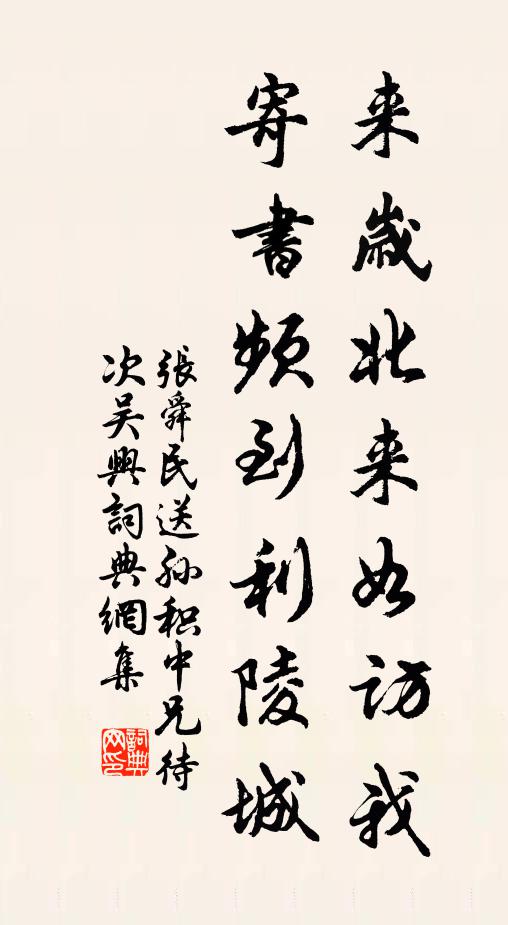 来歲北来如訪我
寄書頻到利陵城
張舜民送孙积中兄待
次吴興詞典網集
詞典
网印